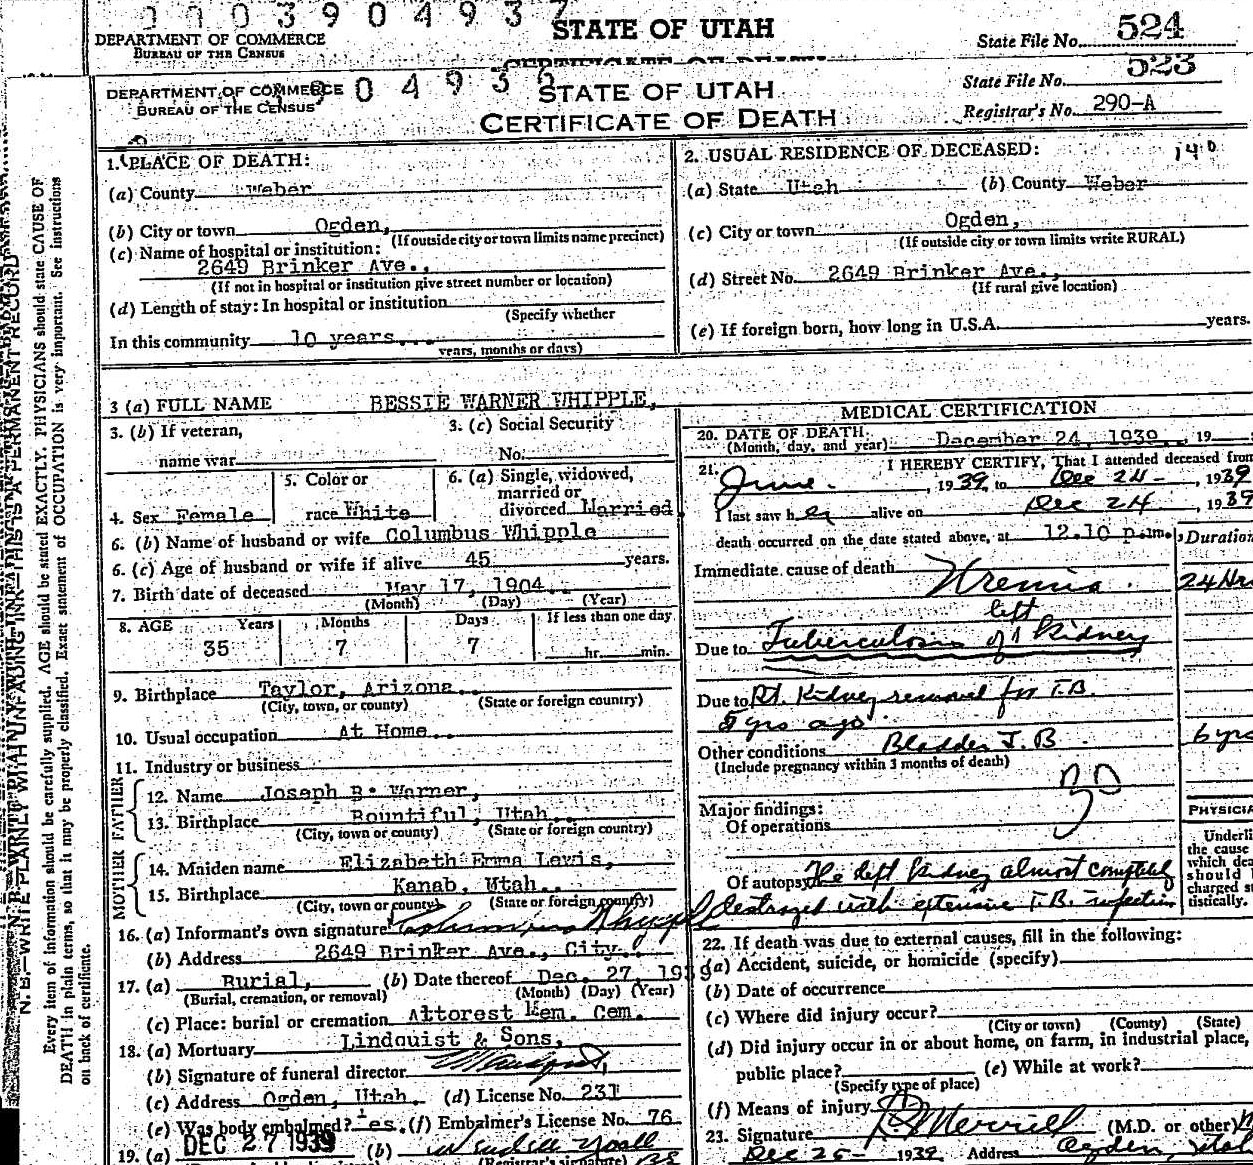 0003904937
DEPARTMENT OF COMMERCE
BUREAU OF THE CENSUS
STATE OF UTAH
State File No. 524
CERTIFICATE OF DEATH
DEPARTMENT OF COMMERCE
BUREAU OF THE CENSUS
904936
STATE OF UTAH
CERTIFICATE OF DEATH
State File No. 523
Registrar's No. 290-A
1. PLACE OF DEATH:
(a) County Weber
(b) City or town Ogden,
(If outside city or town limits name precinct)
(c) Name of hospital or institution:
2649 Brinker Ave.,
(If not in hospital or institution give street number or location)
(d) Length of stay: In hospital or institution
(Specify whether
In this community 10 years
years, months or days)
2. USUAL RESIDENCE OF DECEASED: 140
(a) State Utah (b) County Weber
(c) City or town Ogden,
(If outside city or town limits write RURAL)
(d) Street No. 2649 Brinker Ave.,
(If rural give location)
(e) If foreign born, how long in U.S.A. years.
3 (a) FULL NAME BESSIE WARNER WHIPPLE,
3. (b) If veteran,
name war
3. (c) Social Security
No.
4. Sex Female
5. Color or
race White
6. (a) Single, widowed,
married or
divorced Married
6. (b) Name of husband or wife Columbus Whipple
6. (c) Age of husband or wife if alive 45 years.
7. Birth date of deceased May 17, 1904
(Month) (Day) (Year)
8. AGE Years Months Days If less than one day
35 7 7 hr. min.
9. Birthplace Taylor, Arizona
(City, town, or county) (State or foreign country)
10. Usual occupation At Home
11. Industry or business
FATHER
12. Name Joseph B. Warner,
13. Birthplace Bountiful, Utah
(City, town or county) (State or foreign country)
MOTHER
14. Maiden name Elizabeth Emma Lewis,
15. Birthplace Kanab, Utah
(City, town or county) (State or foreign country)
16. (a) Informant's own signature Columbus Whipple
(b) Address 2649 Brinker Ave., City.
17. (a) Burial, (b) Date thereof Dec. 27, 1939
(Burial, cremation, or removal) (Month) (Day) (Year)
(c) Place: burial or cremation Attorest Mem. Cem.
18. (a) Mortuary Lindquist & Sons,
(b) Signature of funeral director
(c) Address Ogden, Utah. (d) License No. 231
(e) Was body embalmed? Yes. (f) Embalmer's License No. 76
19. (a) DEC 27 1939 (b)
(Registrar's signature)
MEDICAL CERTIFICATION
20. DATE OF DEATH
(Month, day, and year) December 24, 1939 19
21. I HEREBY CERTIFY, That I attended deceased from
June. , 1939, to Dec 24 - , 1939
I last saw her alive on Dec 24 , 1939
death occurred on the date stated above, at 12.10 p.m. Duration
Immediate cause of death Uremia. 24 Hrs
left
Due to Tuberculosis of Kidney
Due to Rt. Kidney removed for T.B.
5 yrs ago
Other conditions Bladder T.B. 6 yrs
(Include pregnancy within 3 months of death)
Major findings:
Of operations
Of autopsy The left kidney almost completely
destroyed with extensive T.B. infection
PHYSICIA
Underli
the cause
which dea
should
charged st
tistically.
22. If death was due to external causes, fill in the following:
(a) Accident, suicide, or homicide (specify)
(b) Date of occurrence
(c) Where did injury occur?
(City or town) (County) (State)
(d) Did injury occur in or about home, on farm, in industrial place,
public place? (e) While at work?
(Specify type of place)
(f) Means of injury
23. Signature Merrill (M.D. or other) M
Dec 25- 1939 Address Ogden, Utah
N. B.—WRITE PLAINLY WITH UNFADING INK—THIS IS A PERMANENT RECORD
Every item of information should be carefully supplied. AGE should be stated EXACTLY. PHYSICIANS should state CAUSE OF
DEATH in plain terms, so that it may be properly classified. Exact statement of OCCUPATION is very important. See instructions
on back of certificate.